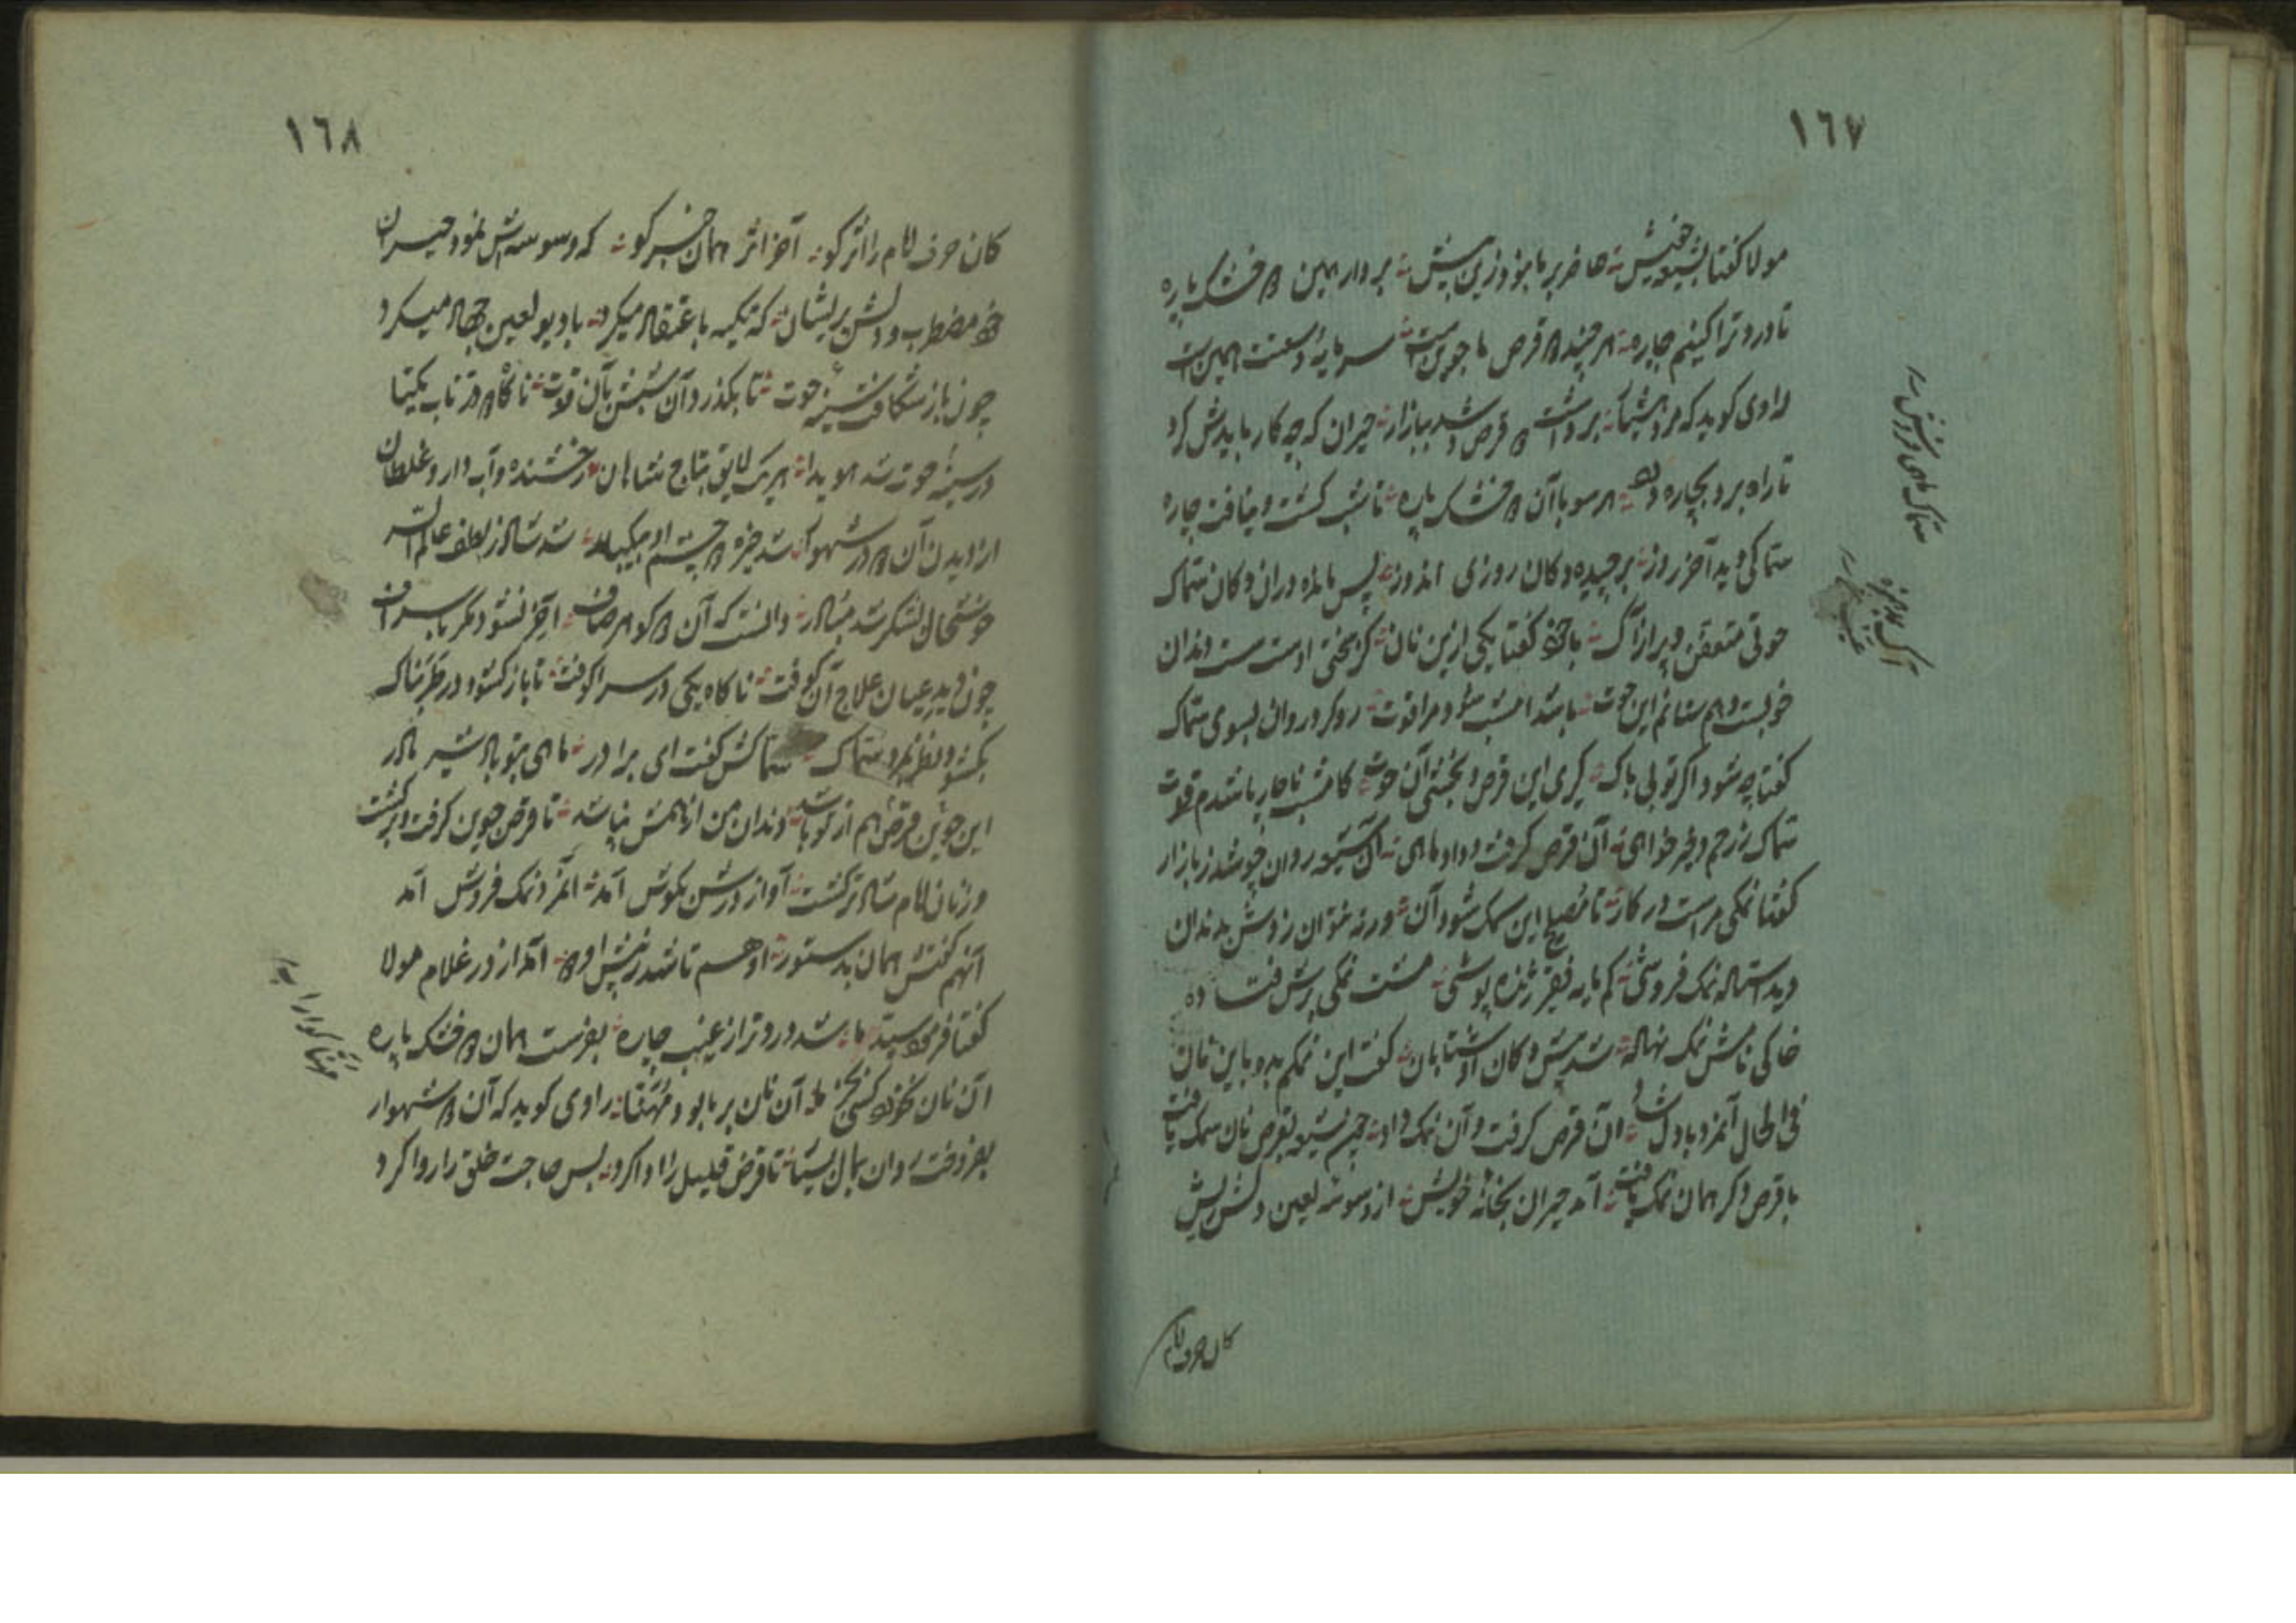 ١٦٧
مولا گفتا بشیعه خویش حاضر بر ما نبود زین بیش بردار همین دو خشک پاره
تا درد ترا کنیم چاره هر چند دو قرص ما جوین است سرمایهٔ وسعت همین است
راوی گوید که مرد برداشت دو قرص و شد ببازار حیران که چه کار بایدش کرد
تا راه برد بچاره هر سو با آن دو خشک پاره تا شب گشت و نیافت چاره
سماکی دید آخر روز برچیده دکان روزی اندوز پس مانده در آن دکان سماک
حوتی متعفن و پر از آک با خود گفتا یکی ازین نان کز سختی اوست سست دندان
خوبست دهم ستانم این حوت باشد امشب مرا قوت رو کرد روان بسوی سماک
گفتا چه شود اگر تو بی باک گیری این قرص و بخشی آن حوت کامشب ناچار باشدم قوت
سماک ز رحم و خیرخواهی آن قرص گرفت و داد ماهی آن شیعه روان چو شد ز بازار
گفتا نمکی مراست در کار تا نضج این سمک شود آن ورنه نتوان زدش بدندان
دید استاده نمک فروشی کم مایه فقیر ژنده پوشی مشت نمکی
خاکی نامش نمک نهاده شد پیش دکان او شتابان گفت این نمکم بده باین نان
فی الحال آنمرد با دل شاد آن قرص گرفت و آن نمک داد چون شیعه بقرص نان سمک یافت
با قرص دگر همان نمک یافت آمد حیران بخانهٔ خویش از وسوسهٔ لعین دلش ریش
سماک ماهی فروش
کان حرف امام
١٦٨
کان حرف امام را اثر کو آخر اثر همان خبر کو که وسوسه‌اش نمود حیران
خود مضطرب و دلش پریشان که تکیه باعتقاد میکرد با دیو لعین جهاد میکرد
چون باز شکافت سینه حوت تا بگذرد آن شبش بآن قوت ناگاه دو در ناب یکتا
در سینه حوت شد هویدا هر یک لایق بتاج شاهان رخشنده و آب دار و غلطان
از دیدن آن دو در شهوار شد خیره دو چشم او بیکبار شد شاد ز لطف عالم السر
خوشحال لشکر شد دانست که آن دو گوهر صاف آخر نشود مگر باسراف
چون دید عیان علاج آن کوفت ناگاه یکی در سرا کوفت تا باز گشود در طربناک
بگشود نظر نمرد سماک سماکش گفت ای برادر ماهی بتو باد شیر مادر
این جوین قرص هم از تو باشد دندان من از همش نپاشد تا قرص جوین گرفت و برگشت
وز نان امام شادتر گشت آواز درش بگوش آمد آنمرد نمک فروش آمد
آنهم گفتش همان بدستور او هم تا شد ز پیش او دور آمد از در غلام مولا
گفتا فرمود سید ما شد درد ترا ز غیب چاره بفرست همان دو خشک پاره
آن نان نخورد کسی بجز ما آن نان بر ما بود مهنا راوی گوید که آن دو شهوار
بفروخت روان بمال بسیار تا قرض قلیل را ادا کرد پس حاجت خلق را روا کرد
مهنا گوارا